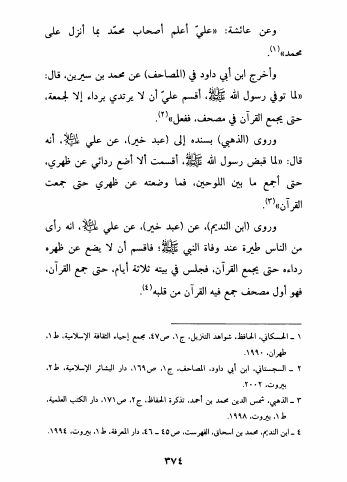 وعن عائشة: «عليّ أعلم أصحاب محمّد بما أنزل على
محمد»(١).
وأخرج ابن أبي داود في (المصاحف) عن محمد بن سيرين، قال:
«لما توفي رسول الله ﷺ، أقسم عليّ أن لا يرتدي برداء إلا لجمعة،
حتى يجمع القرآن في مصحف، ففعل»(٢).
وروى (الذهبي) بسنده إلى (عبد خير)، عن علي عليه السلام، أنه
قال: «لما قبض رسول الله ﷺ، أقسمت ألا أضع ردائي عن ظهري،
حتى أجمع ما بين اللوحين، فما وضعته عن ظهري حتى جمعت
القرآن»(٣).
وروى (ابن النديم)، عن (عبد خير)، عن علي عليه السلام، انه رأى
من الناس طيرة عند وفاة النبي ﷺ؛ فاقسم أن لا يضع عن ظهره
رداءه حتى يجمع القرآن، فجلس في بيته ثلاثة أيام، حتى جمع القرآن،
فهو أول مصحف جمع فيه القرآن من قلبه(٤).
١ ـ الحسكاني، الحافظ، شواهد التنزيل، ج١، ص٤٧، مجمع إحياء الثقافة الإسلامية، ط١،
طهران، ١٩٩٠.
٢ ـ السجستاني، ابن أبي داود، المصاحف، ج١، ص١٦٩، دار البشائر الإسلامية، ط٢،
بيروت، ٢٠٠٢.
٣ ـ الذهبي، شمس الدين محمد بن أحمد، تذكرة الحفاظ، ج٢، ص١٧١، دار الكتب العلمية،
ط١، بيروت، ١٩٩٨.
٤ ـ ابن النديم، محمد بن اسحاق، الفهرست، ص٤٥ ـ ٤٦، دار المعرفة، ط١، بيروت، ١٩٩٤.
٣٧٤